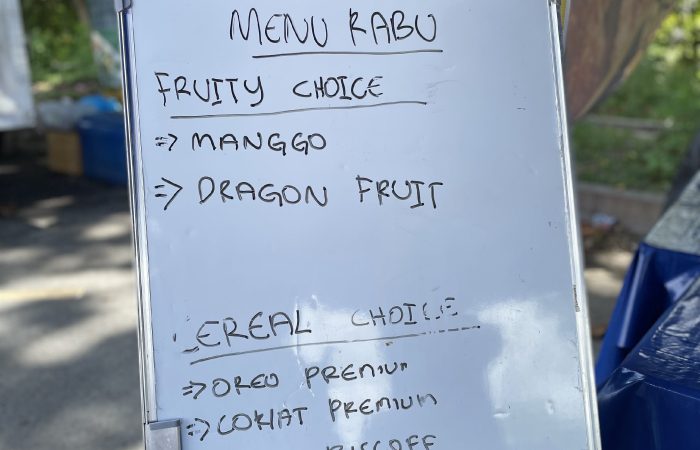 MENU RABU
FRUITY CHOICE
=> MANGGO
=> DRAGON FRUIT
CEREAL CHOICE
=> OREO PREMIUM
=> COKLAT PREMIUM
BISCOFF